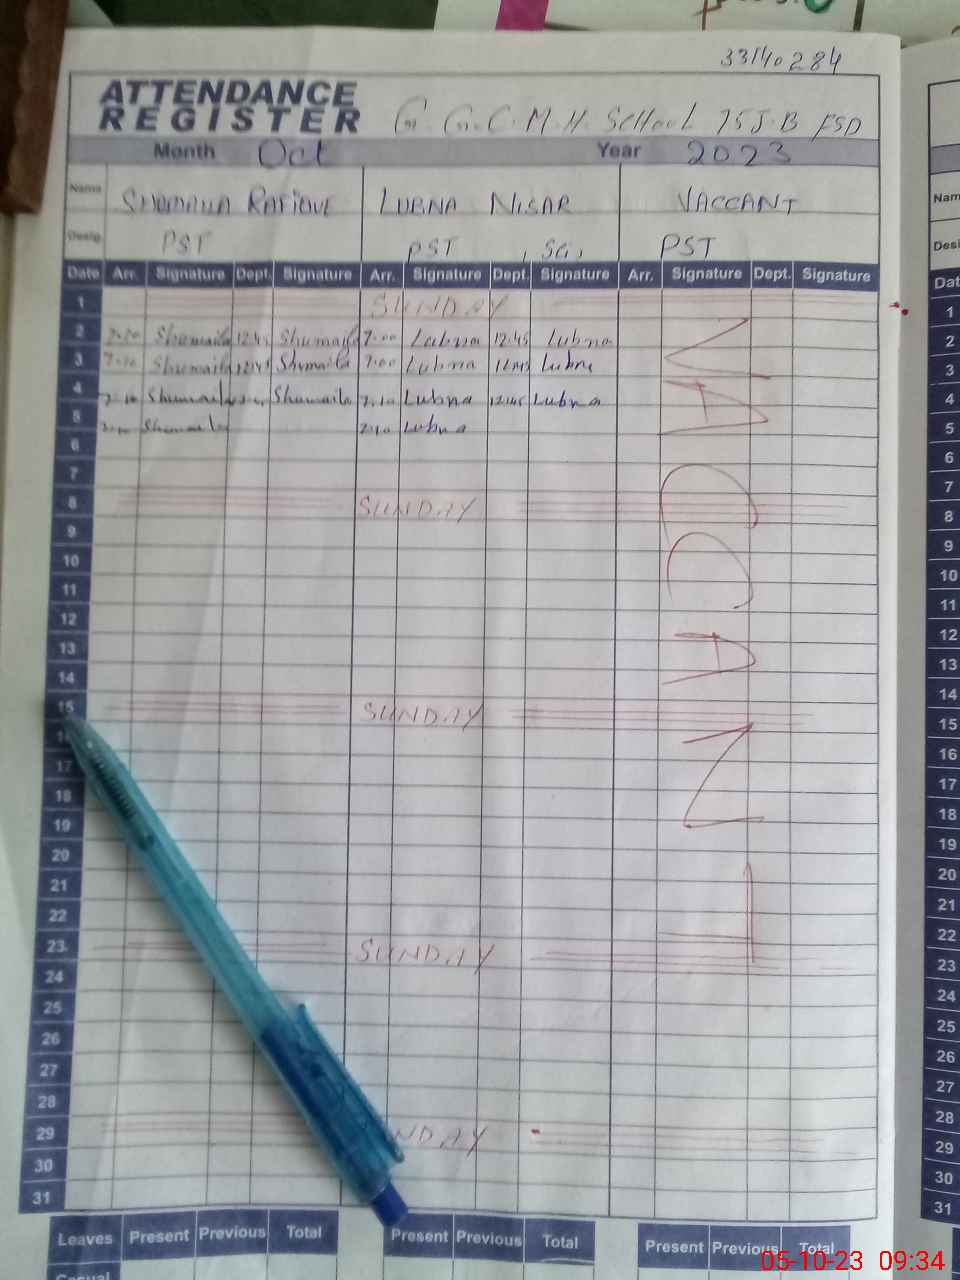 33140284
ATTENDANCE
REGISTER G.G.C.M.H. SCHOOL 75 J.B FSD
Month Oct Year 2023
Name SHUMAILA RAFIQUE LUBNA NISAR VACCANT Nam
Desig. PST PST, Sci, PST Desi
Date Arr. Signature Dept. Signature Arr. Signature Dept. Signature Arr. Signature Dept. Signature Dat
1 SUNDAY 1
2 7.00 Shumaila 12.45 Shumaila 7.00 Lubna 12.45 Lubna 2
3 Shumaila 12.45 Shumaila 7.00 Lubna 12.45 Lubna 3
4 7.10 Shumaila Shumaila 7.10 Lubna 12.45 Lubna 4
5 7.10 Shumaila 7.10 Lubna 5
6 6
7 7
8 SUNDAY 8
9 9
10 10
11 11
12 12
13 13
14 14
15 SUNDAY 15
16 16
17 17
18 18
19 19
20 20
21 21
22 22
23 SUNDAY 23
24 24
25 25
26 26
27 27
28 28
29 NDAY 29
30 30
31 31
VACCANT
Leaves Present Previous Total Present Previous Total Present Previous Total
Casual
05-10-23 09:34